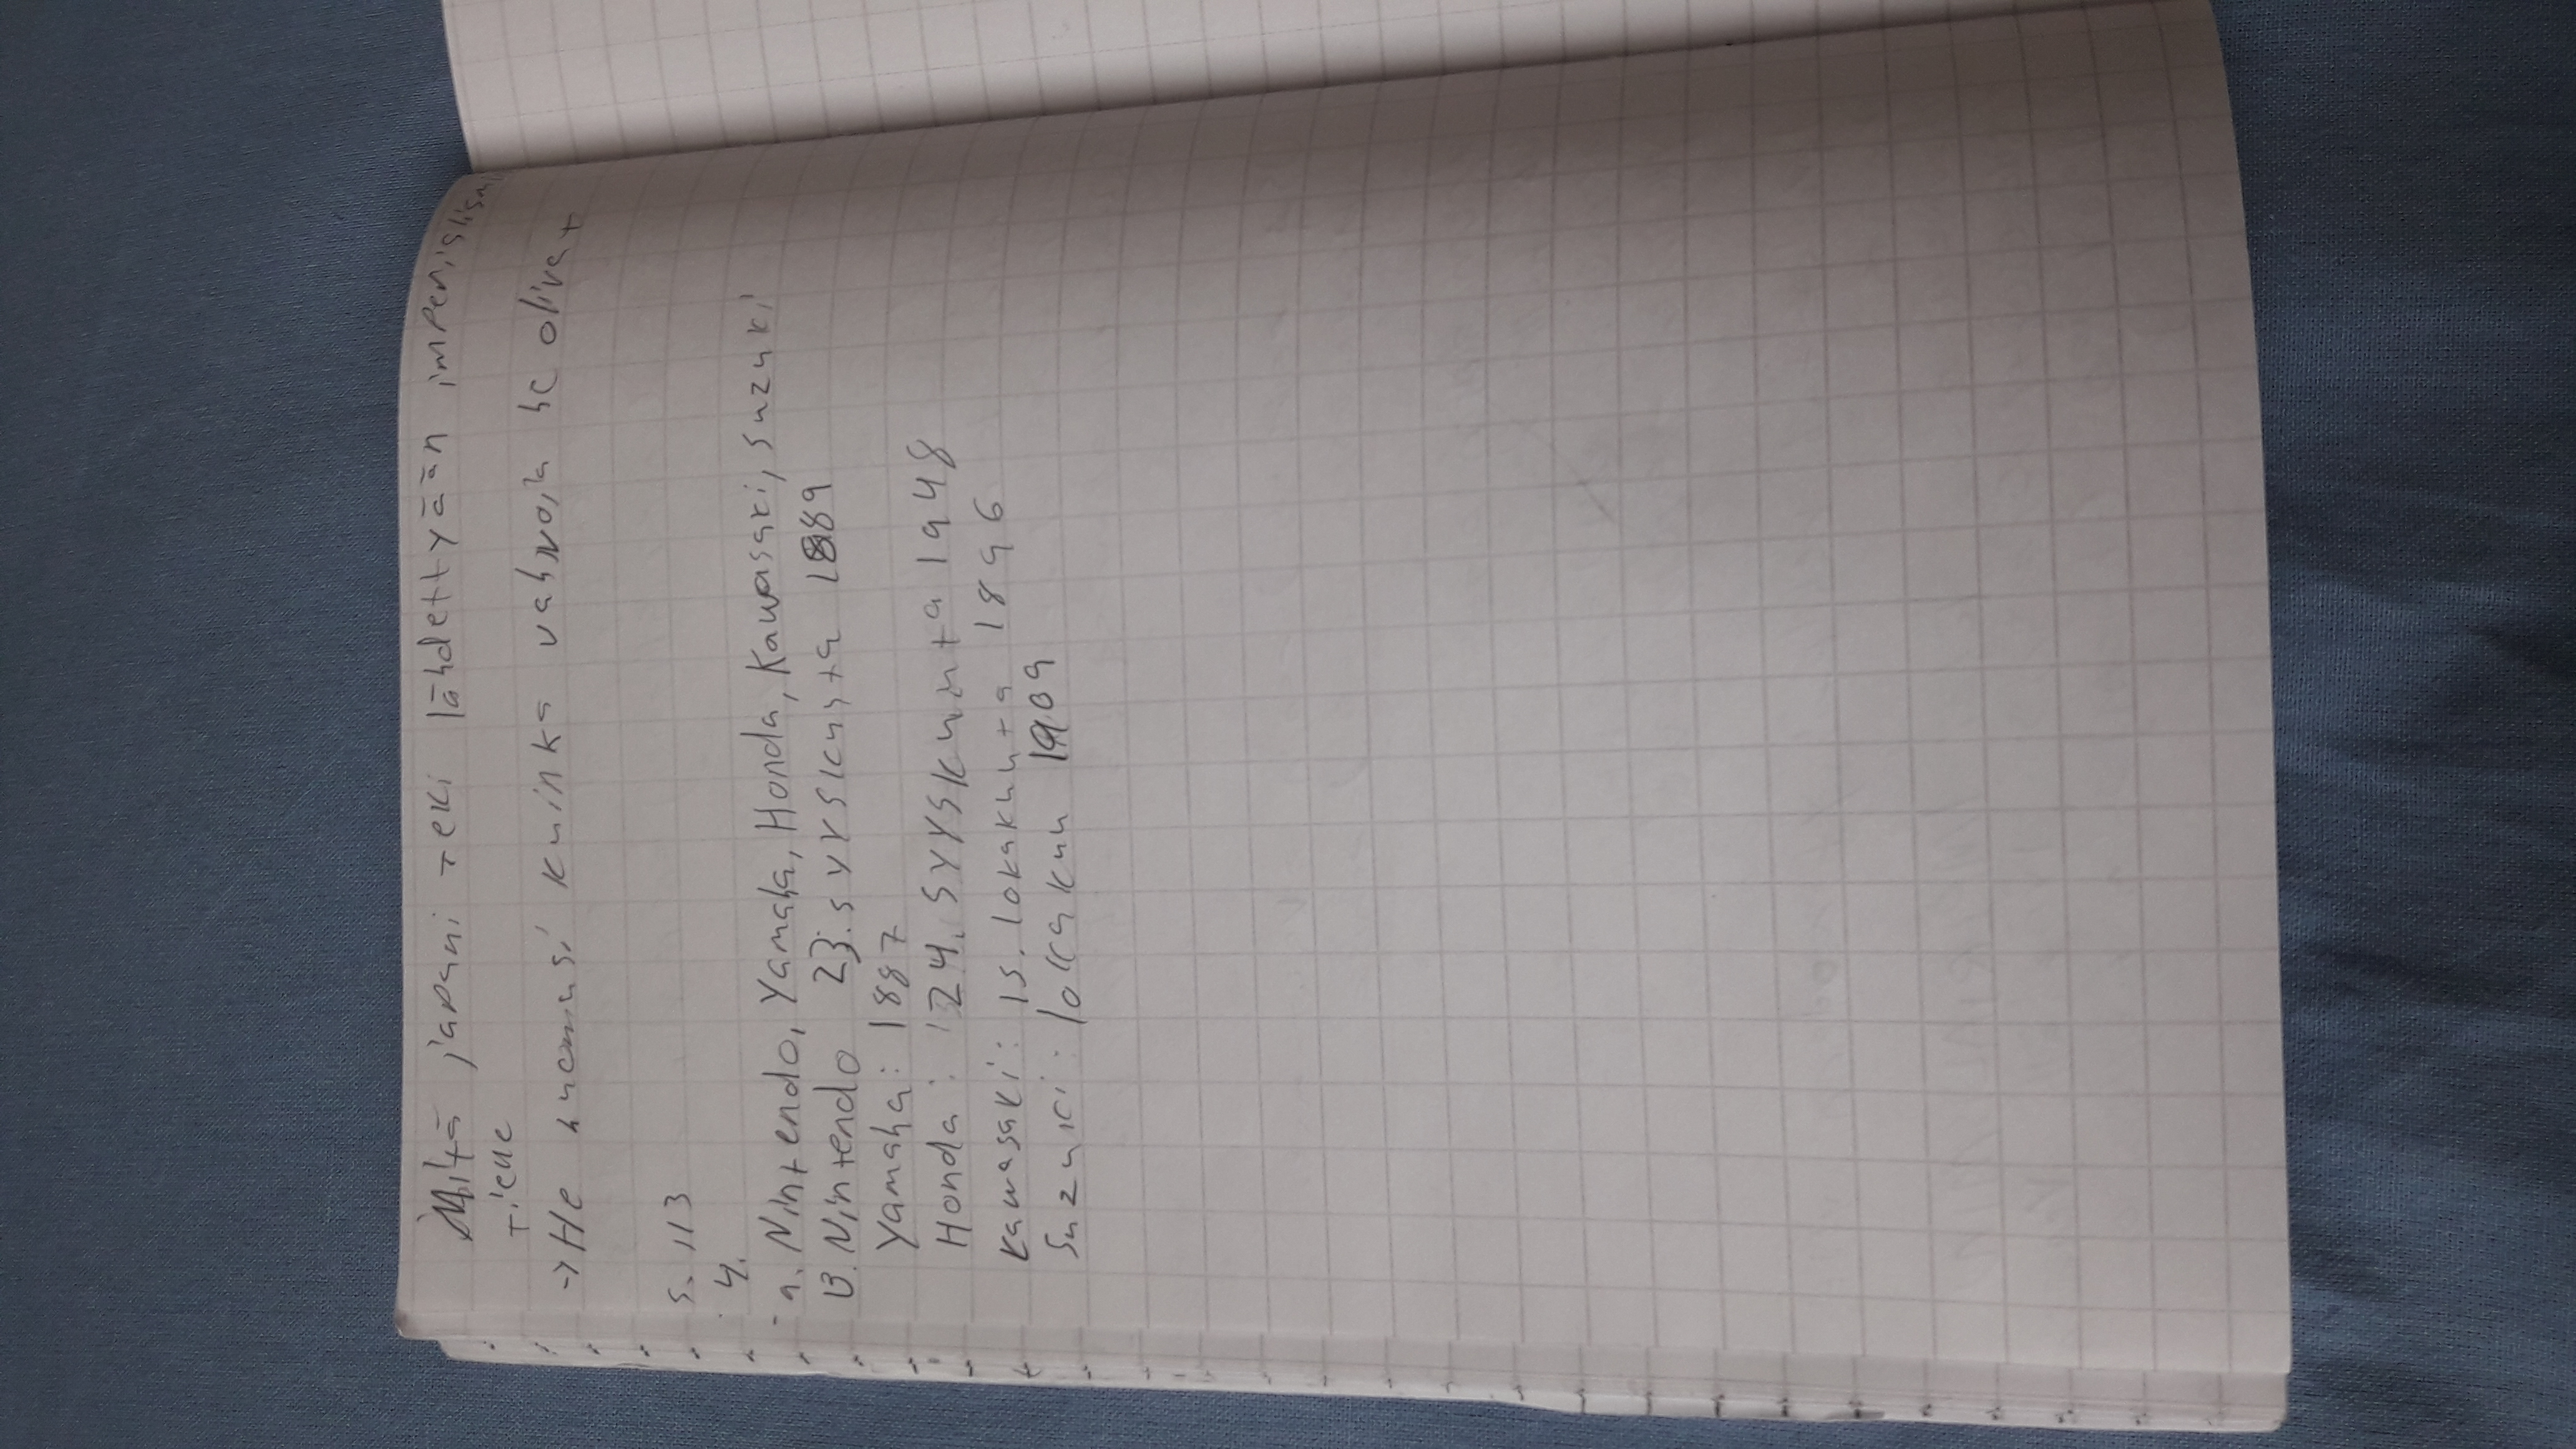 Miltä japani teki lähdettyään imperialismi
tielle
→ He huomasi kuinka vahvoja he olivat
s. 113
4.
a. Nintendo, Yamaha, Honda, Kawasaki, suzuki
B. Nintendo 23. syyskuuta 1889
Yamaha: 1887
Honda: 24. syyskuuta 1948
Kawasaki: 15. lokakuuta 1896
Suzuki: lokakuu 1909